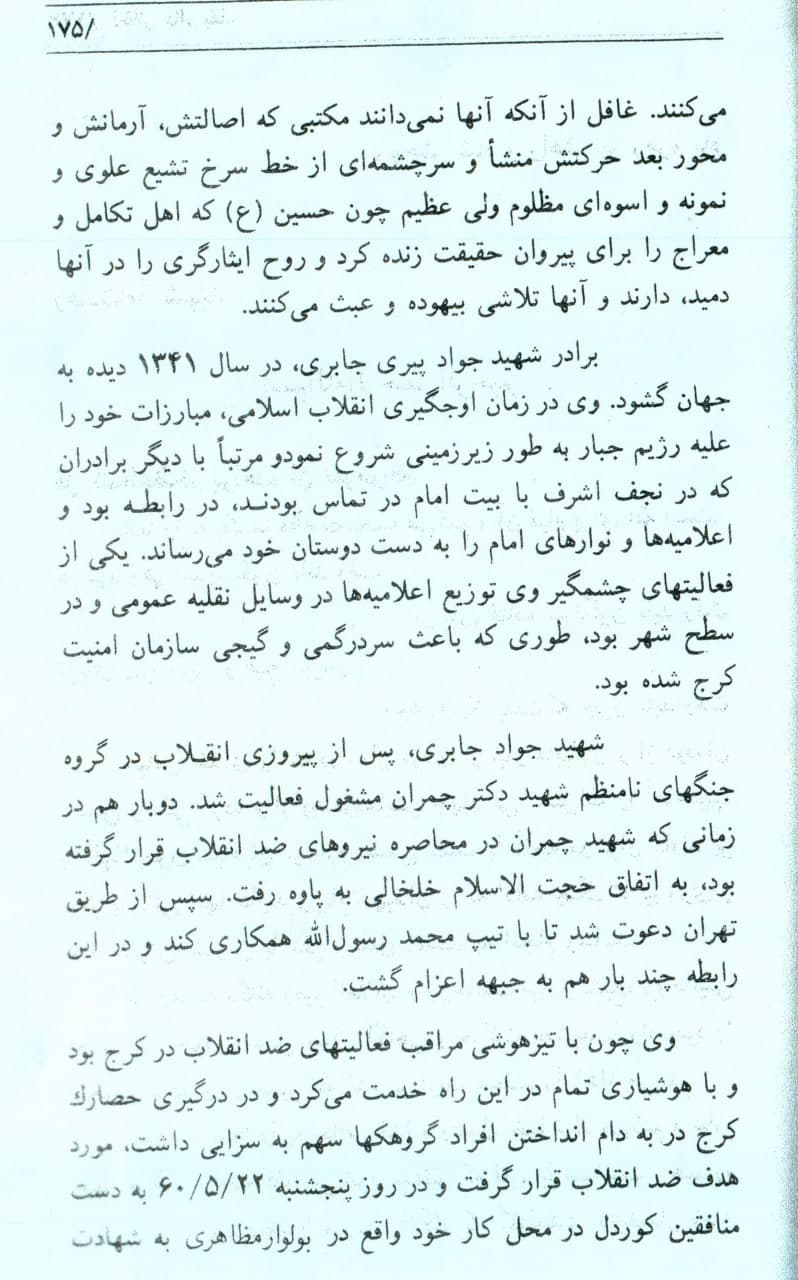 ۱۷۵/
می‌کنند. غافل از آنکه آنها نمی‌دانند مکتبی که اصالتش، آرمانش و
محور بعد حرکتش منشأ و سرچشمه‌ای از خط سرخ تشیع علوی و
نمونه و اسوه‌ای مظلوم ولی عظیم چون حسین (ع) که اهل تکامل و
معراج را برای پیروان حقیقت زنده کرد و روح ایثارگری را در آنها
دمید، دارند و آنها تلاشی بیهوده و عبث می‌کنند.
برادر شهید جواد پیری جابری، در سال ۱۳۴۱ دیده به
جهان گشود. وی در زمان اوجگیری انقلاب اسلامی، مبارزات خود را
علیه رژیم جبار به طور زیرزمینی شروع نمودو مرتباً با دیگر برادران
که در نجف اشرف با بیت امام در تماس بودند، در رابطه بود و
اعلامیه‌ها و نوارهای امام را به دست دوستان خود می‌رساند. یکی از
فعالیتهای چشمگیر وی توزیع اعلامیه‌ها در وسایل نقلیه عمومی و در
سطح شهر بود، طوری که باعث سردرگمی و گیجی سازمان امنیت
کرج شده بود.
شهید جواد جابری، پس از پیروزی انقلاب در گروه
جنگهای نامنظم شهید دکتر چمران مشغول فعالیت شد. دوبار هم در
زمانی که شهید چمران در محاصره نیروهای ضد انقلاب قرار گرفته
بود، به اتفاق حجت الاسلام خلخالی به پاوه رفت. سپس از طریق
تهران دعوت شد تا با تیپ محمد رسول‌الله همکاری کند و در این
رابطه چند بار هم به جبهه اعزام گشت.
وی چون با تیزهوشی مراقب فعالیتهای ضد انقلاب در کرج بود
و با هوشیاری تمام در این راه خدمت می‌کرد و در درگیری حصارك
کرج در به دام انداختن افراد گروهکها سهم به سزایی داشت، مورد
هدف ضد انقلاب قرار گرفت و در روز پنجشنبه ۶۰/۵/۲۲ به دست
منافقین کوردل در محل کار خود واقع در بولوارمظاهری به شهادت